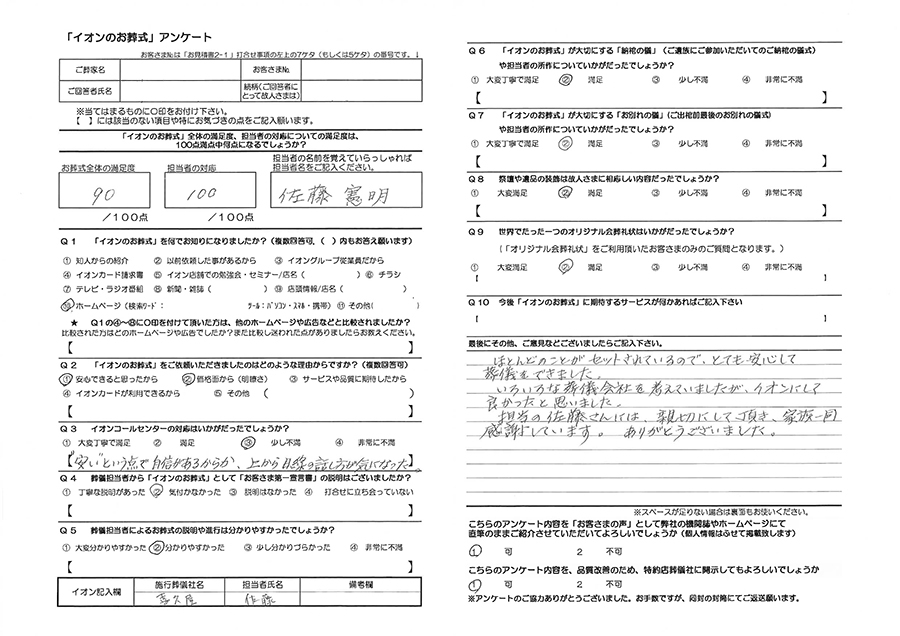 「イオンのお葬式」アンケート
お客さま№は「お見積書2-1」打合せ事項の左上の7ケタ（もしくは5ケタ）の番号です。↓
ご葬家名
お客さま№
ご回答者氏名
続柄(ご回答者にとって故人さまは)
※当てはまるものに○印をお付け下さい。
【　】には該当のない項目や特にお気づきの点をご記入願います。
「イオンのお葬式」全体の満足度、担当者の対応についての満足度は、
100点満点中何点になるでしょうか？
お葬式全体の満足度
担当者の対応
担当者の名前を覚えていらっしゃれば
担当者名をご記入ください。
90
100
佐藤 憲明
／100点
／100点
Q1 「イオンのお葬式」を何でお知りになりましたか？（複数回答可、（　）内もお答え願います）
① 知人からの紹介 ② 以前依頼した事があるから ③ イオングループ従業員だから
④ イオンカード請求書 ⑤ イオン店舗での勉強会・セミナー/店名（　） ⑥ チラシ
⑦ テレビ・ラジオ番組 ⑧ 新聞・雑誌（　） ⑨ 店頭情報/店名（　）
⑩ ホームページ（検索ﾜｰﾄﾞ：　ﾂｰﾙ：ﾊﾟｿｺﾝ・ｽﾏﾎ・携帯） ⑪ その他（　）
★ Q1の④～⑧に○印を付けて頂いた方は、他のホームページや広告などと比較されましたか？
比較された方はどのホームページや広告でしたか？また比較し迷われた点がありましたらお教えください。
【　】
Q2 「イオンのお葬式」をご依頼いただきましたのはどのような理由からですか？（複数回答可）
① 安心できると思ったから ② 価格面から（明瞭さ） ③ サービスや品質に期待したから
④ イオンカードが利用できるから ⑤ その他（　）
【　】
Q3 イオンコールセンターの対応はいかがだったでしょうか？
① 大変丁寧で満足 ② 満足 ③ 少し不満 ④ 非常に不満
【"安い"という点で自信があるからか、上から目線の話し方が気になった】
Q4 葬儀担当者から「イオンのお葬式」として「お客さま第一宣言書」の説明はございましたか？
① 丁寧な説明があった ② 気付かなかった ③ 説明はなかった ④ 打合せに立ち会っていない
【　】
Q5 葬儀担当者によるお葬式の説明や進行は分かりやすかったでしょうか？
① 大変分かりやすかった ② 分かりやすかった ③ 少し分かりづらかった ④ 非常に不満
【　】
イオン記入欄
施行葬儀社名
担当者氏名
備考欄
喜久屋
佐藤
Q6 「イオンのお葬式」が大切にする「納棺の儀」（ご遺族にご参加いただいてのご納棺の儀式）
や担当者の所作についていかがだったでしょうか？
① 大変丁寧で満足 ② 満足 ③ 少し不満 ④ 非常に不満
【　】
Q7 「イオンのお葬式」が大切にする「お別れの儀」（ご出棺前最後のお別れの儀式）
や担当者の所作についていかがだったでしょうか？
① 大変丁寧で満足 ② 満足 ③ 少し不満 ④ 非常に不満
【　】
Q8 祭壇や遺品の装飾は故人さまに相応しい内容だったでしょうか？
① 大変満足 ② 満足 ③ 少し不満 ④ 非常に不満
【　】
Q9 世界でたった一つのオリジナル会葬礼状はいかがだったでしょうか？
（「オリジナル会葬礼状」をご利用頂いたお客さまのみのご質問となります。）
① 大変満足 ② 満足 ③ 少し不満 ④ 非常に不満
【　】
Q10 今後「イオンのお葬式」に期待するサービスが何かあればご記入下さい
【　】
最後にその他、ご意見などございましたらご記入下さい。
ほとんどのことがセットされているので、とても安心して
葬儀をできました。
いろいろな葬儀会社を考えていましたが、イオンにして
良かったと思いました。
担当の佐藤さんには、親切にして頂き、家族一同
感謝しています。ありがとうございました。
※スペースが足りない場合は裏面もお使いください。
こちらのアンケート内容を「お客さまの声」として弊社の機関誌やホームページにて
直筆のままご紹介させていただいてよろしいでしょうか（個人情報はふせて掲載致します）
1 可 2 不可
こちらのアンケート内容を、品質改善のため、特約店葬儀社に開示してもよろしいでしょうか
1 可 2 不可
※アンケートのご協力ありがとうございました。お手数ですが、同封の封筒にてご返送願います。